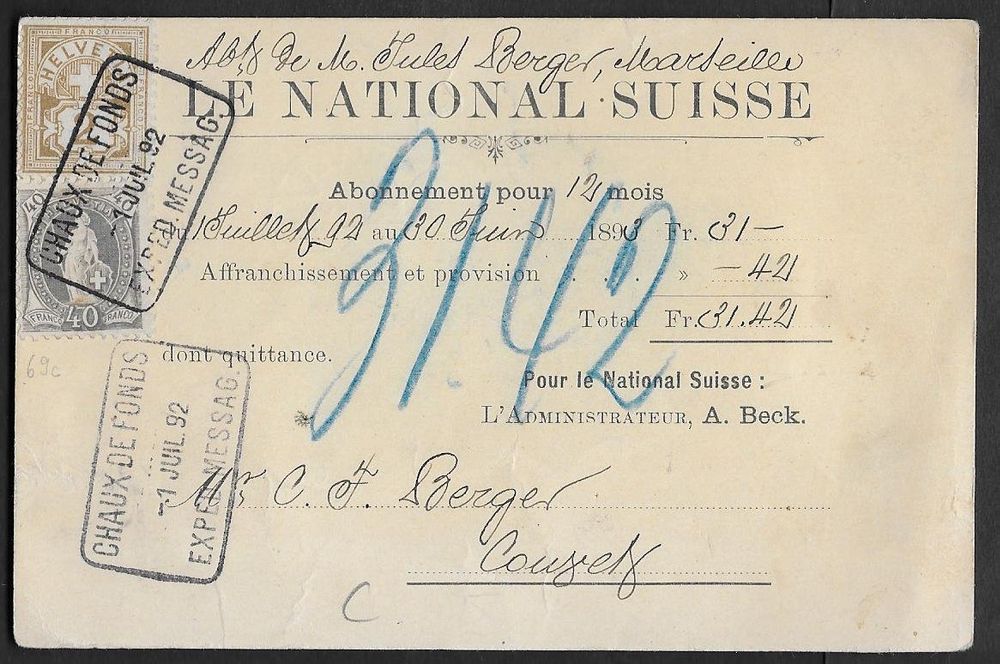 Abt de M. Jules Berger, Marseille
LE NATIONAL SUISSE
Abonnement pour 12 mois
du 1 Juillet 92 au 30 Juin 1893 Fr. 31 —
Affranchissement et provision . . . » — 42
Total Fr. 31.42
dont quittance.
Pour le National Suisse :
L'ADMINISTRATEUR, A. Beck.
Mr C. F. Berger
Couvet
3142
HELVETIA
FRANCO
FRANCO
FRANCO
40
40
FRANCO
FRANCO
CHAUX-DE-FONDS
-1 JUIL.92
EXPED. MESSAG.
CHAUX-DE-FONDS
-1 JUIL.92
EXPED. MESSAG.
69c
C